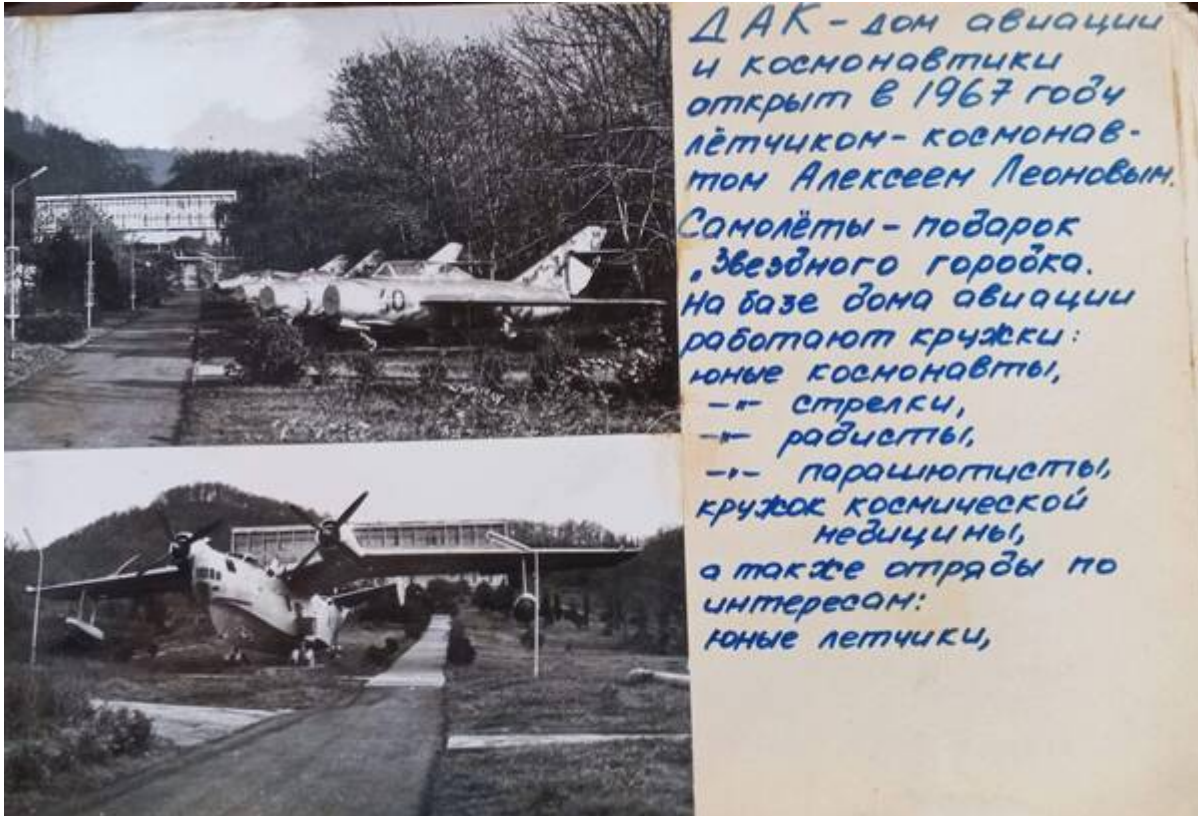 ДАК - дом авиации
и космонавтики
открыт в 1967 году
лётчиком-космонав-
том Алексеем Леоновым.
Самолёты - подарок
„Звездного городка.
На базе дома авиации
работают кружки:
юные космонавты,
-"- стрелки,
-"- радисты,
-"- парашютисты,
кружок космической
медицины,
а также отряды по
интересам:
юные летчики,